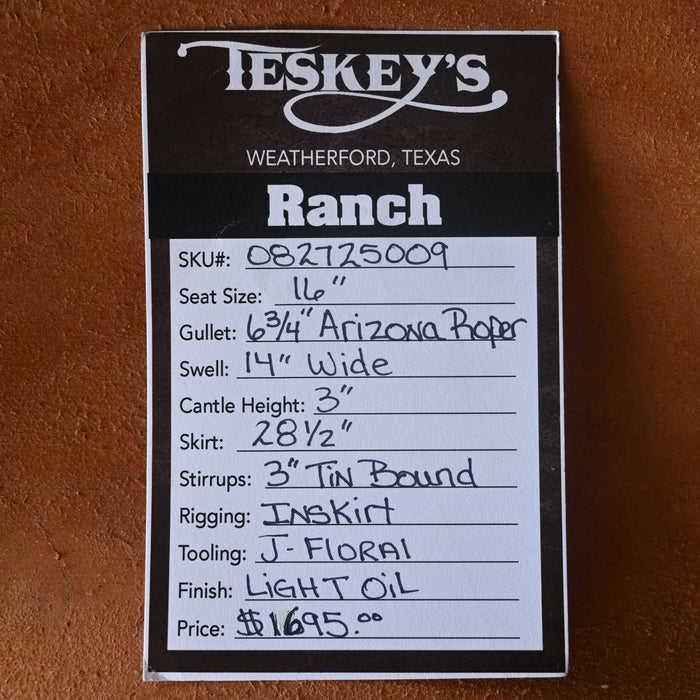 TESKEY'S
WEATHERFORD, TEXAS
Ranch
SKU#: 082725009
Seat Size: 16"
Gullet: 6 3/4" Arizona Roper
Swell: 14" Wide
Cantle Height: 3"
Skirt: 28 1/2"
Stirrups: 3" Tin Bound
Rigging: Inskirt
Tooling: J-Floral
Finish: Light Oil
Price: $1695.00